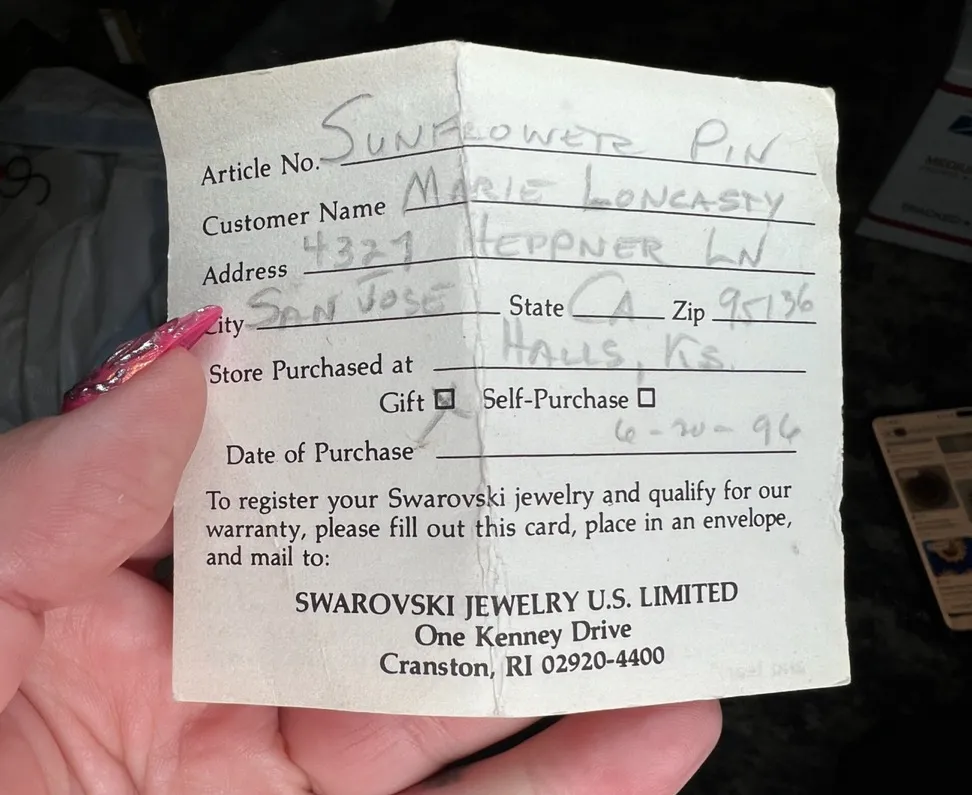 Article No. SUNFLOWER PIN
Customer Name MARIE LONCASTY
Address 4327 HEPPNER LN
City SAN JOSE State CA Zip 95136
Store Purchased at HALLS, KS.
Gift ☒ Self-Purchase ☐
Date of Purchase 6-20-96
To register your Swarovski jewelry and qualify for our
warranty, please fill out this card, place in an envelope,
and mail to:
SWAROVSKI JEWELRY U.S. LIMITED
One Kenney Drive
Cranston, RI 02920-4400